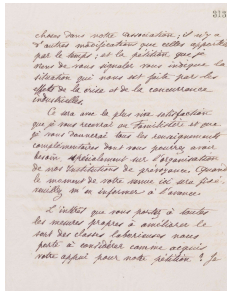 315
choses dans notre association ; il n'y a
d'autres modifications que celles apportées
par le temps ; et la pétition que je
viens de vous signaler vous indique la
situation qui nous est faite par les
effets de la crise et de la concurrence
industrielles.
Ce sera avec la plus vive satisfaction
que je vous recevrai au Familistère et que
je vous donnerai tous les renseignements
complémentaires dont vous pourrez avoir
besoin, spécialement sur l'organisation
de nos institutions de prévoyance. Quand
le moment de votre venue ici sera fixé,
veuillez m'en informer à l'avance.
L'intérêt que vous portez à toutes
les mesures propres à améliorer le
sort des classes laborieuses nous
porte à considérer comme acquis
votre appui pour notre pétition. Je